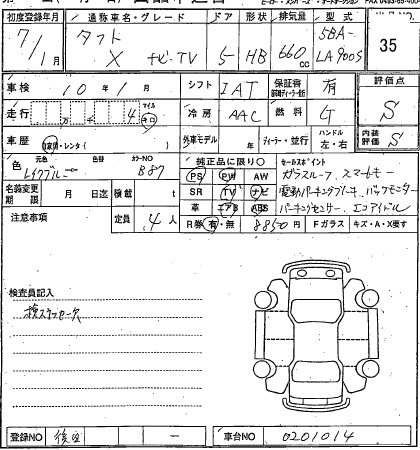 初度登録年月 通称車名・グレード ドア 形状 排気量 型式
7/1月 タフト X ナビTV 5 HB 660cc 5BA-LA900S 35
車検 10年1月 シフト IAT 保証書 有 評価点
走行 万 千 4 マイル キロ 冷房 AAC 燃料 G S
車歴 自家用・レンタ( ) 外車モデル 年 ディーラー・並行 ハンドル 左・右 内装評価 S
色 元色 レイクブルー 色替 カラーNO B87 純正品に限り○ セールスポイント
PS PW AW ガラスルーフ、スマートキー
名義変更期限 月 日迄 積載 t SR TV ナビ 電動パーキングブレーキ、バックモニター
注意事項 定員 4人 革 エアB ABS パーキングセンサー、エコアイドル
R券 有・無 8850円 Fガラス キズ・A・X要す
検査員記入
検スタッフセーフ
登録NO 後日 — 車台NO 0201014